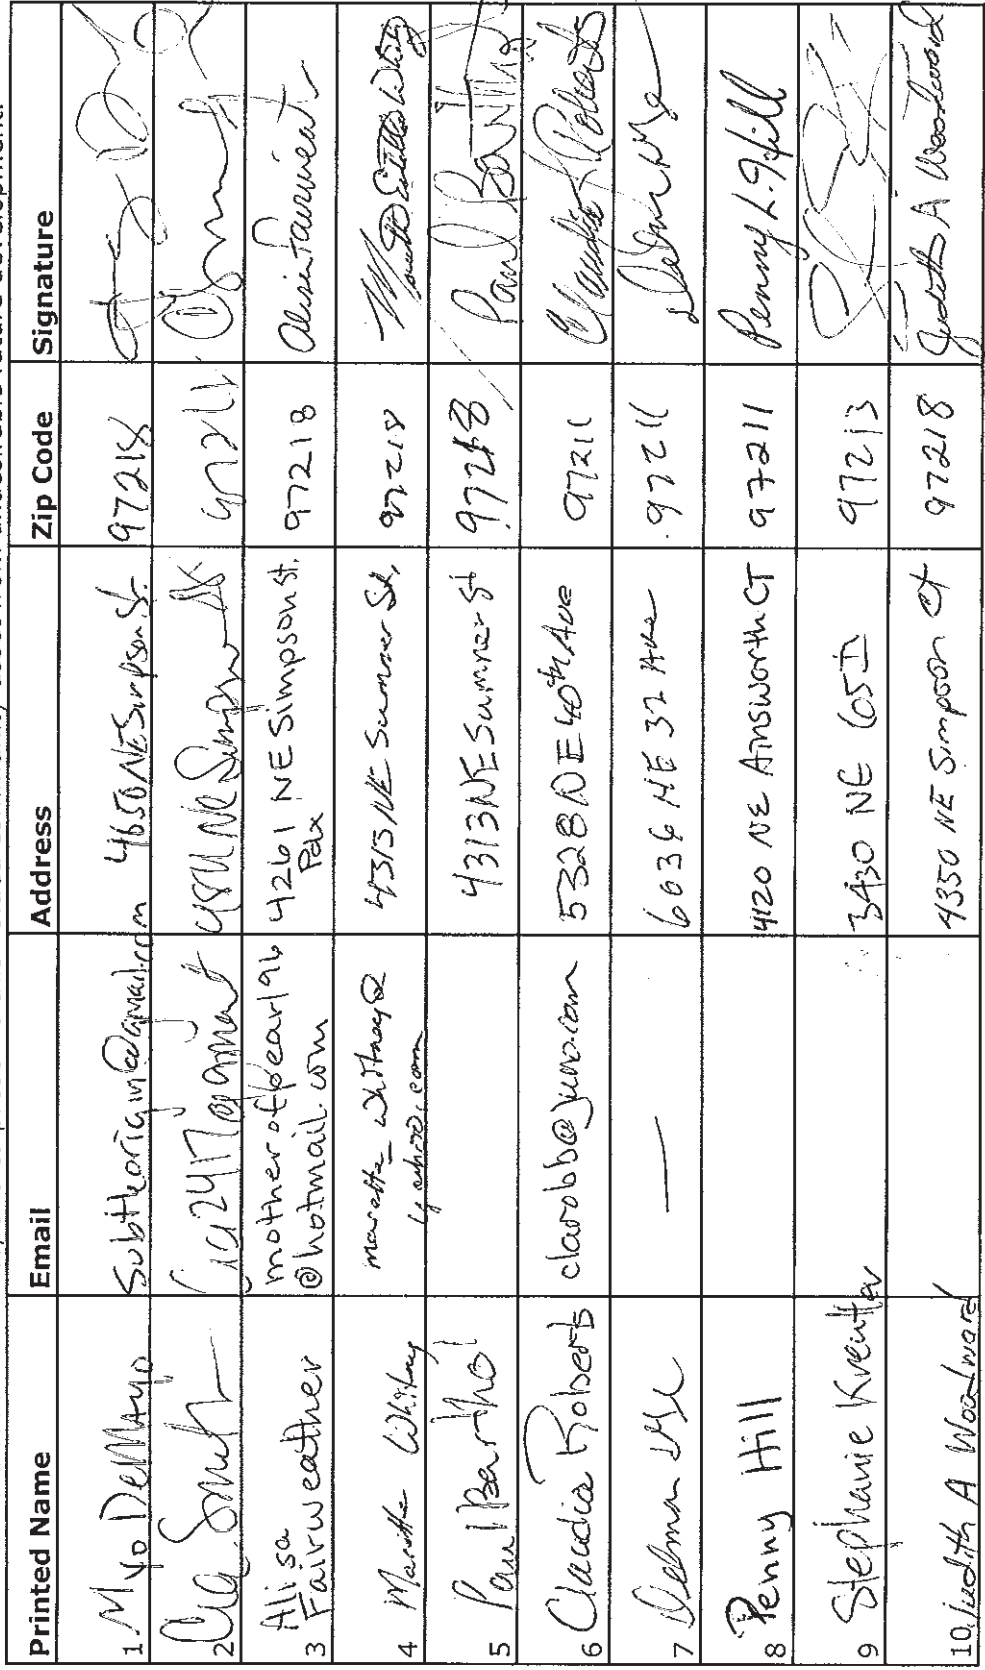 Printed Name Email Address Zip Code Signature
1 M yo DeMayo Subtheorigin@gmail.com 4650 NE Simpson St. 97218
2 NE Simpson 97211
3 Alisa Fairweather motherofpearl96 @hotmail.com 4261 NE Simpson st. Pdx 97218 Alisa Fairweather
4 Marette Whitney marette_whitney@ yahoo.com 4313 NE Sumner St. 97218
5 Paul Barthol 4313 NE Sumner St 97218 Paul
6 Claudia Roberts clarobb@juno.com 5328 NE 40th Ave 97211 Claudia Roberts
7 — 6636 NE 32 Ave 97211
8 Penny Hill 4120 NE Ainsworth CT 97211 Penny L. Hill
9 Stephanie Kreutter 3430 NE 65th 97213
10 Judith A Woodward 4350 NE Simpson Ct 97218 Judith A Woodward